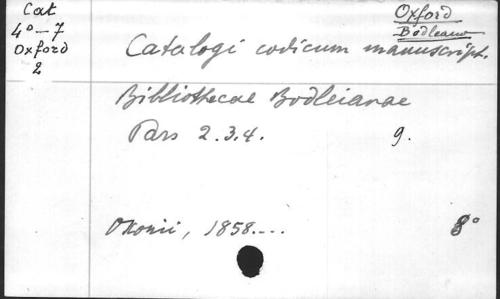 Cat
4° - 7
Oxford
2
Oxford
Bodleiano
Catalogi codicum manuscript.
Bibliothecae Bodleianae
Pars 2.3.4. 9.
Oxonii, 1858.... 8°